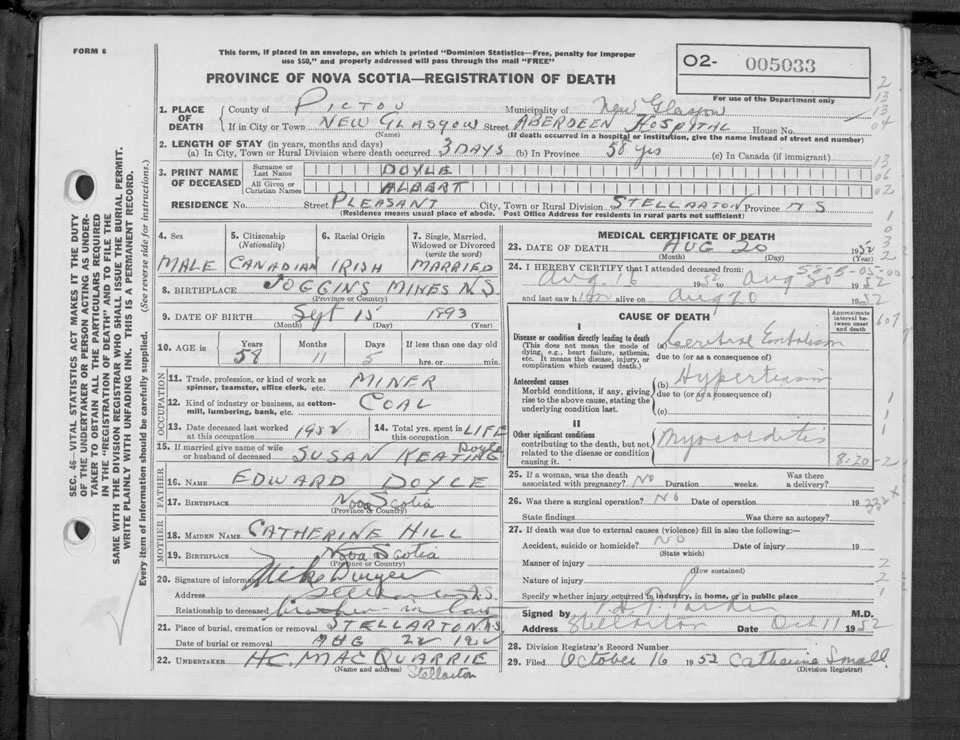 FORM 6
This form, if placed in an envelope, on which is printed "Dominion Statistics—Free, penalty for improper
use $50," and properly addressed will pass through the mail "FREE"
PROVINCE OF NOVA SCOTIA—REGISTRATION OF DEATH
O2- 005033
For use of the Department only
1. PLACE OF DEATH { County of PICTOU Municipality of New Glasgow
If in City or Town NEW GLASGOW Street ABERDEEN HOSPITAL House No.
(Name) (If death occurred in a hospital or institution, give the name instead of street and number)
2. LENGTH OF STAY (in years, months and days)
(a) In City, Town or Rural Division where death occurred 3 DAYS (b) In Province 58 yrs (c) In Canada (if immigrant)
3. PRINT NAME OF DECEASED { Surname or Last Name DOYLE
All Given or Christian Names ALBERT
RESIDENCE No. Street PLEASANT City, Town or Rural Division STELLARTON Province N S
(Residence means usual place of abode. Post Office Address for residents in rural parts not sufficient)
SEC. 46—VITAL STATISTICS ACT MAKES IT THE DUTY
OF THE UNDERTAKER OR PERSON ACTING AS UNDER-
TAKER TO OBTAIN ALL THE PARTICULARS REQUIRED
IN THE "REGISTRATION OF DEATH" AND TO FILE THE
SAME WITH THE DIVISION REGISTRAR WHO SHALL ISSUE THE BURIAL PERMIT.
WRITE PLAINLY WITH UNFADING INK. THIS IS A PERMANENT RECORD.
Every item of information should be carefully supplied. (See reverse side for instructions.)
4. Sex MALE
5. Citizenship (Nationality) CANADIAN
6. Racial Origin IRISH
7. Single, Married, Widowed or Divorced (write the word) MARRIED
8. BIRTHPLACE JOGGINS MINES N.S
(Province or Country)
9. DATE OF BIRTH Sept 15 1893
(Month) (Day) (Year)
10. AGE in Years 58 Months 11 Days 5 If less than one day old
hrs. or min.
OCCUPATION
11. Trade, profession, or kind of work as spinner, teamster, office clerk, etc. MINER
12. Kind of industry or business, as cotton-mill, lumbering, bank, etc. COAL
13. Date deceased last worked at this occupation 1952 14. Total yrs. spent in this occupation LIFE
15. If married give name of wife or husband of deceased SUSAN KEATING Doyle
FATHER
16. NAME EDWARD DOYLE
17. BIRTHPLACE Nova Scotia
(Province or Country)
MOTHER
18. MAIDEN NAME CATHERINE HILL
19. BIRTHPLACE Nova Scotia
(Province or Country)
20. Signature of informant Mike Dwyer
Address Stellarton N.S.
Relationship to deceased brother-in-law
21. Place of burial, cremation or removal STELLARTON. N.S
Date of burial or removal AUG 22 1952
22. UNDERTAKER H.C. MACQUARRIE
(Name and address) Stellarton
MEDICAL CERTIFICATE OF DEATH
23. DATE OF DEATH AUG 20 1952
(Month) (Day) (Year)
24. I HEREBY CERTIFY that I attended deceased from:
Aug. 16 1952 to Aug 20 1952
and last saw him alive on Aug 20 1952
CAUSE OF DEATH
Approximate interval between onset and death
I
Disease or condition directly leading to death
(This does not mean the mode of dying, e.g., heart failure, asthenia, etc. It means the disease, injury, or complication which caused death.)
(a) Cerebral Embolism
due to (or as a consequence of)
Antecedent causes
Morbid conditions, if any, giving rise to the above cause, stating the underlying condition last.
(b) Hypertension
due to (or as a consequence of)
(c)
II
Other significant conditions
contributing to the death, but not related to the disease or condition causing it.
Myocarditis
8-20-2
25. If a woman, was the death associated with pregnancy? NO Duration weeks. Was there a delivery?
26. Was there a surgical operation? NO Date of operation 19
State findings Was there an autopsy?
27. If death was due to external causes (violence) fill in also the following:—
Accident, suicide or homicide? NO Date of injury 19
(State which)
Manner of injury
(How sustained)
Nature of injury
Specify whether injury occurred in industry, in home, or in public place
Signed by M.D.
Address Stellarton Date Oct 11 1952
28. Division Registrar's Record Number
29. Filed October 16 1952 Catherine Small
(Division Registrar)